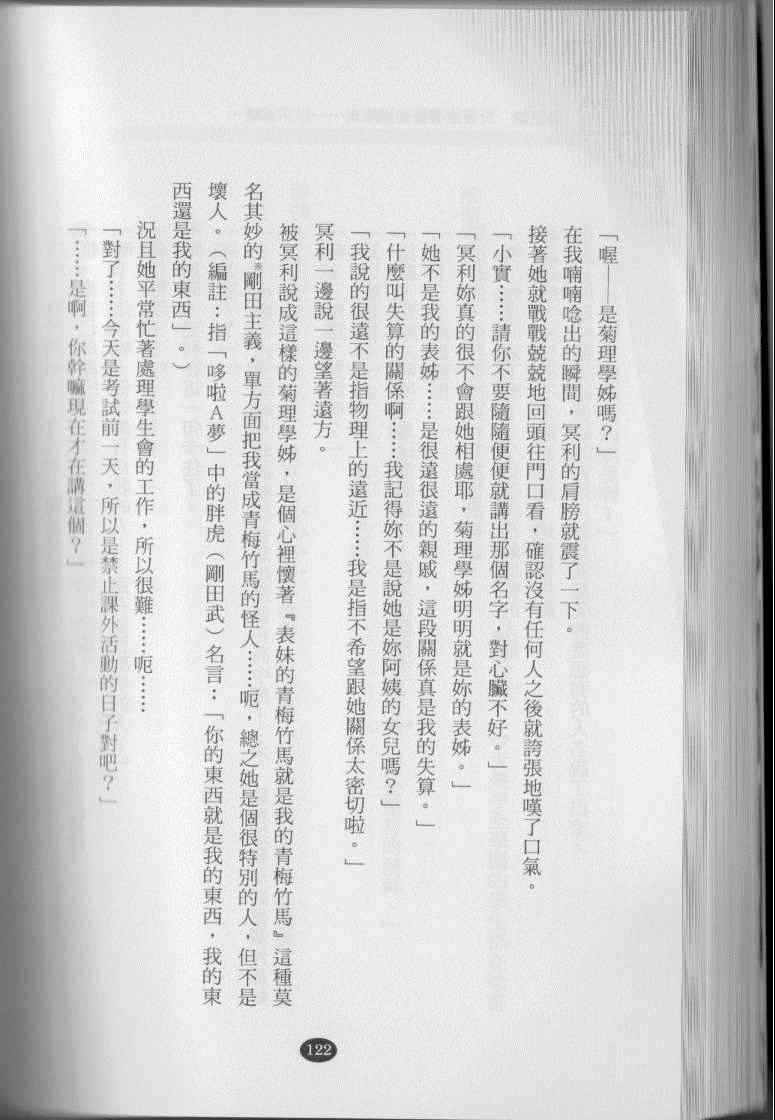 「喔——是菊理學姊嗎？」
在我喃喃唸出的瞬間，冥利的肩膀就震了一下。
接著她就戰戰兢兢地回頭往門口看，確認沒有任何人之後就誇張地嘆了口氣。
「小實……請你不要隨隨便便就講出那個名字，對心臟不好。」
「冥利妳真的很不會跟她相處耶，菊理學姊明明就是妳的表姊。」
「她不是我的表姊……是很遠很遠的親戚，這段關係真是我的失算。」
「什麼叫失算的關係啊……我記得妳不是說她是妳阿姨的女兒嗎？」
「我說的很遠不是指物理上的遠近……我是指不希望跟她關係太密切啦。」
冥利一邊說一邊望著遠方。
被冥利說成這樣的菊理學姊，是個心裡懷著『表妹的青梅竹馬就是我的青梅竹馬』這種莫
名其妙的※剛田主義，單方面把我當成青梅竹馬的怪人……呃，總之她是個很特別的人，但不是
壞人。（編註：指「哆啦Ａ夢」中的胖虎（剛田武）名言：「你的東西就是我的東西，我的東
西還是我的東西」。）
況且她平常忙著處理學生會的工作，所以很難……呃……
「對了……今天是考試前一天，所以是禁止課外活動的日子對吧？」
「……是啊，你幹嘛現在才在講這個？」
122